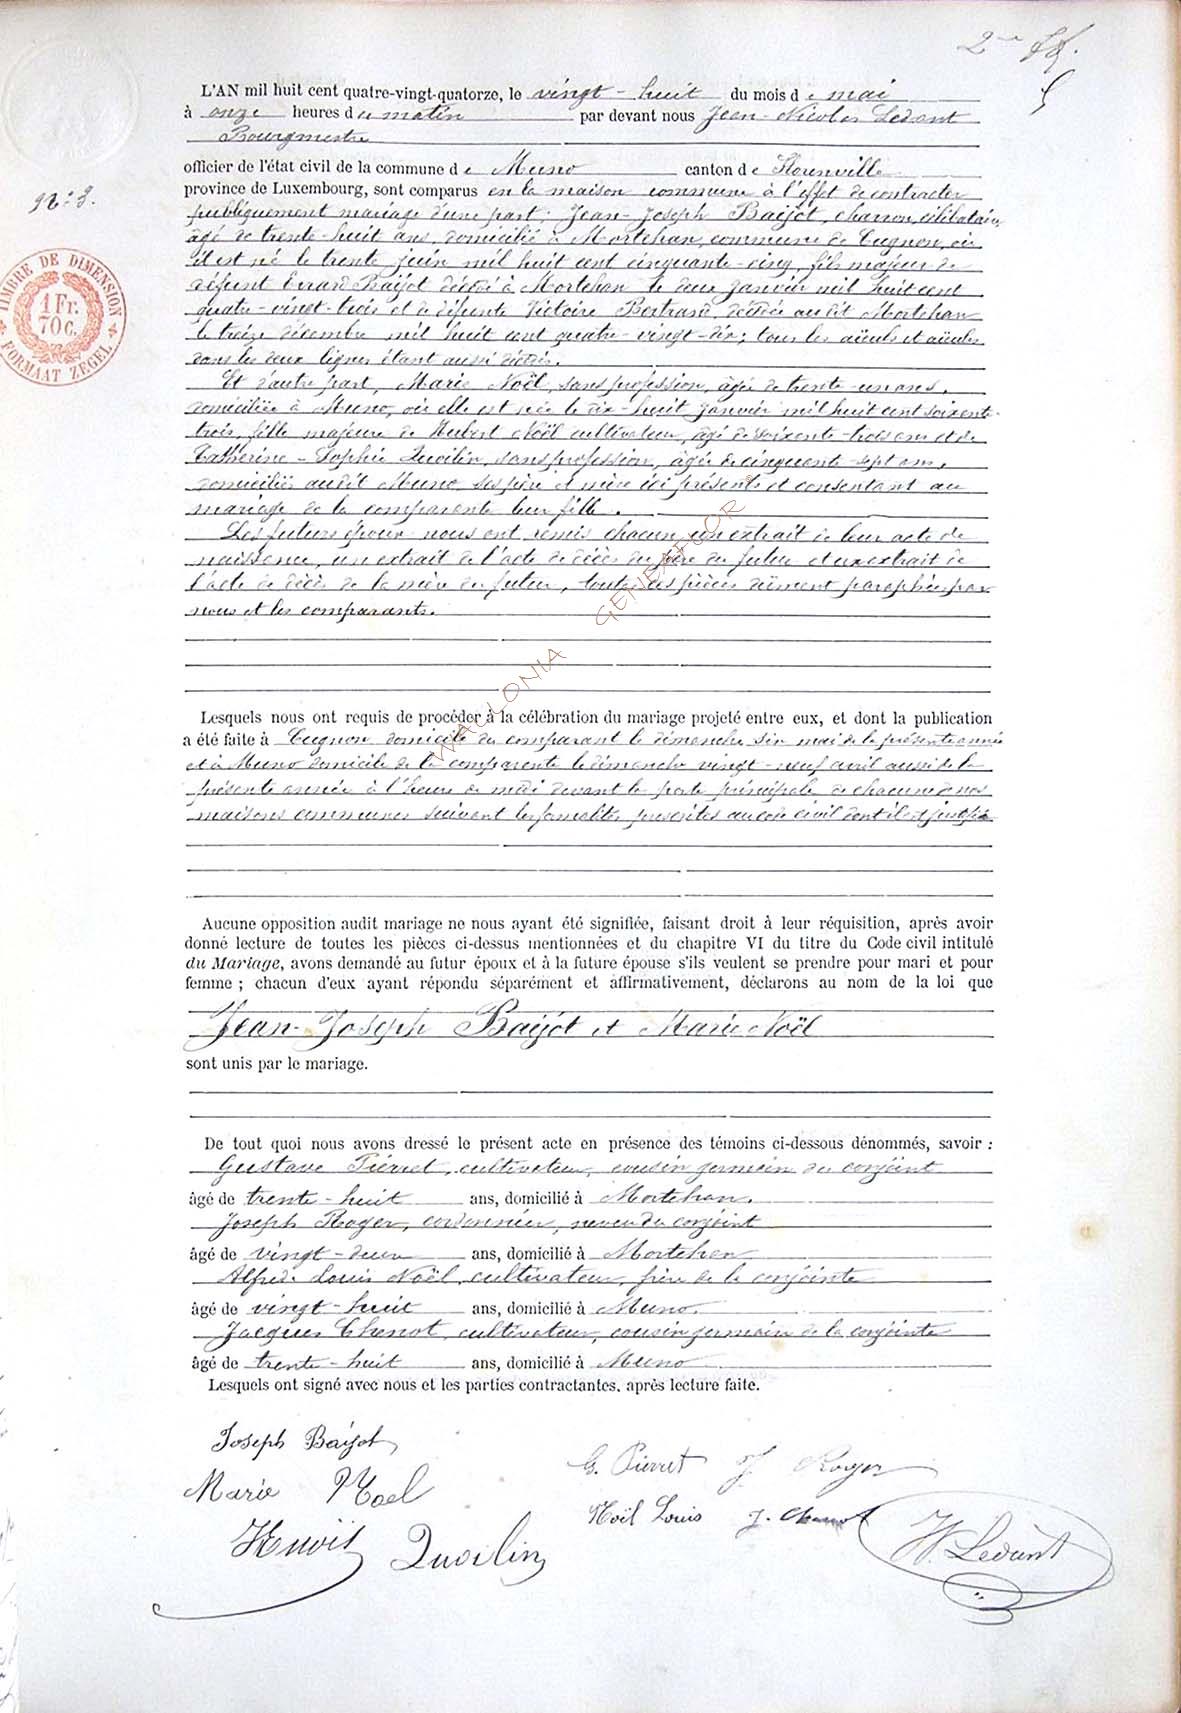 2me
L'AN mil huit cent quatre-vingt-quatorze, le vingt-huit du mois de mai
à onze heures du matin par devant nous Jean-Nicolas Ledant
Bourgmestre
officier de l'état civil de la commune de Muno canton de Florenville
province de Luxembourg, sont comparus en la maison commune à l'effet de contracter
publiquement mariage d'une part; Jean-Joseph Baijot, charron, célibataire,
âgé de trente-huit ans, domicilié à Mortehan, commune de Cugnon, où
il est né le trente juin mil huit cent cinquante-cinq, fils majeur de
défunt Baijot décédé à Mortehan le deux janvier mil huit cent
quatre-vingt-trois et de défunte Victoire Bertrand, décédée audit Mortehan
le treize décembre mil huit cent quatre-vingt-dix; tous les aïeuls et aïeules
dans les deux lignes étant aussi décédés.
Et d'autre part, Marie Noël, sans profession, âgée de trente-un ans,
domiciliée à Muno, où elle est née le dix-huit janvier mil huit cent soixante-
trois, fille majeure de Hubert Noël cultivateur, âgé de soixante-trois ans et de
Catherine-Sophie Quoilin, sans profession, âgée de cinquante-sept ans,
domiciliés audit Muno, ses père et mère ici présents et consentant au
mariage de la comparente leur fille.
Les futurs époux nous ont remis chacun un extrait de leur acte de
naissance, un extrait de l'acte de décès du père du futur et un extrait de
l'acte de décès de la mère du futur, toutes ces pièces dûment paraphées par
nous et les comparants.
Lesquels nous ont requis de procéder à la célébration du mariage projeté entre eux, et dont la publication
a été faite à Cugnon domicile du comparant le dimanche six mai de la présente année
et à Muno domicile de la comparente le dimanche vingt-neuf avril aussi de la
présente année à l'heure de midi devant la porte principale de chacune de nos
maisons communes suivant les formalités prescrites au code civil dont il est justifié
Aucune opposition audit mariage ne nous ayant été signifiée, faisant droit à leur réquisition, après avoir
donné lecture de toutes les pièces ci-dessus mentionnées et du chapitre VI du titre du Code civil intitulé
du Mariage, avons demandé au futur époux et à la future épouse s'ils veulent se prendre pour mari et pour
femme ; chacun d'eux ayant répondu séparément et affirmativement, déclarons au nom de la loi que
Jean-Joseph Baijot et Marie Noël
sont unis par le mariage.
De tout quoi nous avons dressé le présent acte en présence des témoins ci-dessous dénommés, savoir :
Gustave Pierret, cultivateur, cousin germain du conjoint
âgé de trente-huit ans, domicilié à Mortehan.
Joseph Roger, cordonnier, neveu du conjoint
âgé de vingt-deux ans, domicilié à Mortehan
Alfred Louis Noël, cultivateur, frère de la conjointe
âgé de vingt-huit ans, domicilié à Muno.
Jacques Chenot, cultivateur, cousin germain de la conjointe
âgé de trente-huit ans, domicilié à Muno
Lesquels ont signé avec nous et les parties contractantes, après lecture faite.
Joseph Baijot
G. Pierret J Roger
Marie Noel
Noël Louis J. Chenot
Quoilin
N. Ledant
TIMBRE DE DIMENSION
1 Fr.
70 C.
FORMAAT ZEGEL
WALLONIA GENEAFLOR